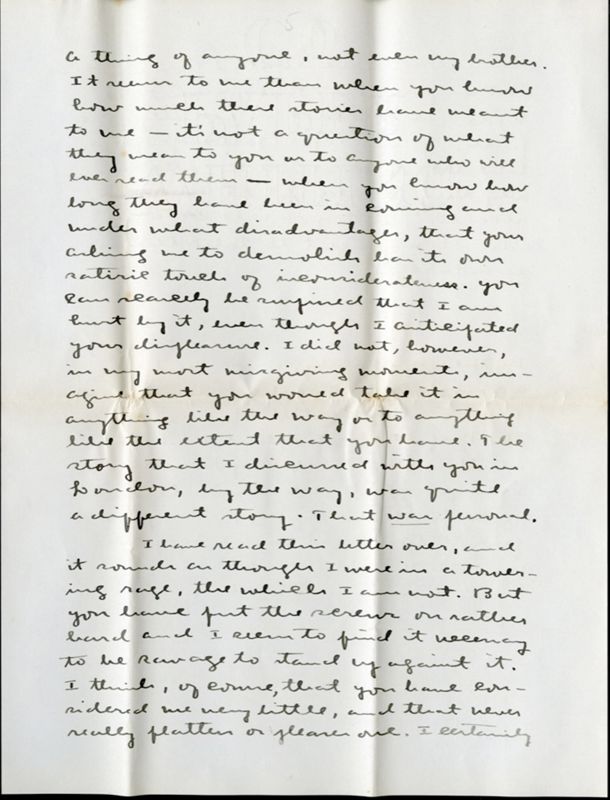 a thing of anyone, not even my brother.
It seems to me than when you know
how much these stories have meant
to me — it's not a question of what
they mean to you or to anyone who will
ever read them — when you know how
long they have been in coming and
under what disadvantages, that your
asking me to demolish has its own
satiric touch of inconsiderateness. You
can scarcely be surprised that I am
hurt by it, even though I anticipated
your displeasure. I did not, however,
in my most misgiving moments, im-
agine that you would take it in
anything like the way or to anything
like the extent that you have. The
story that I discussed with you in
London, by the way, was quite
a different story. That was personal.
I have read this letter over, and
it sounds as though I were in a tower-
ing rage, the which I am not. But
you have put the screws on rather
hard and I seem to find it necessary
to be savage to stand up against it.
I think, of course, that you have con-
sidered me very little, and that never
really flatters or pleases one. I certainly